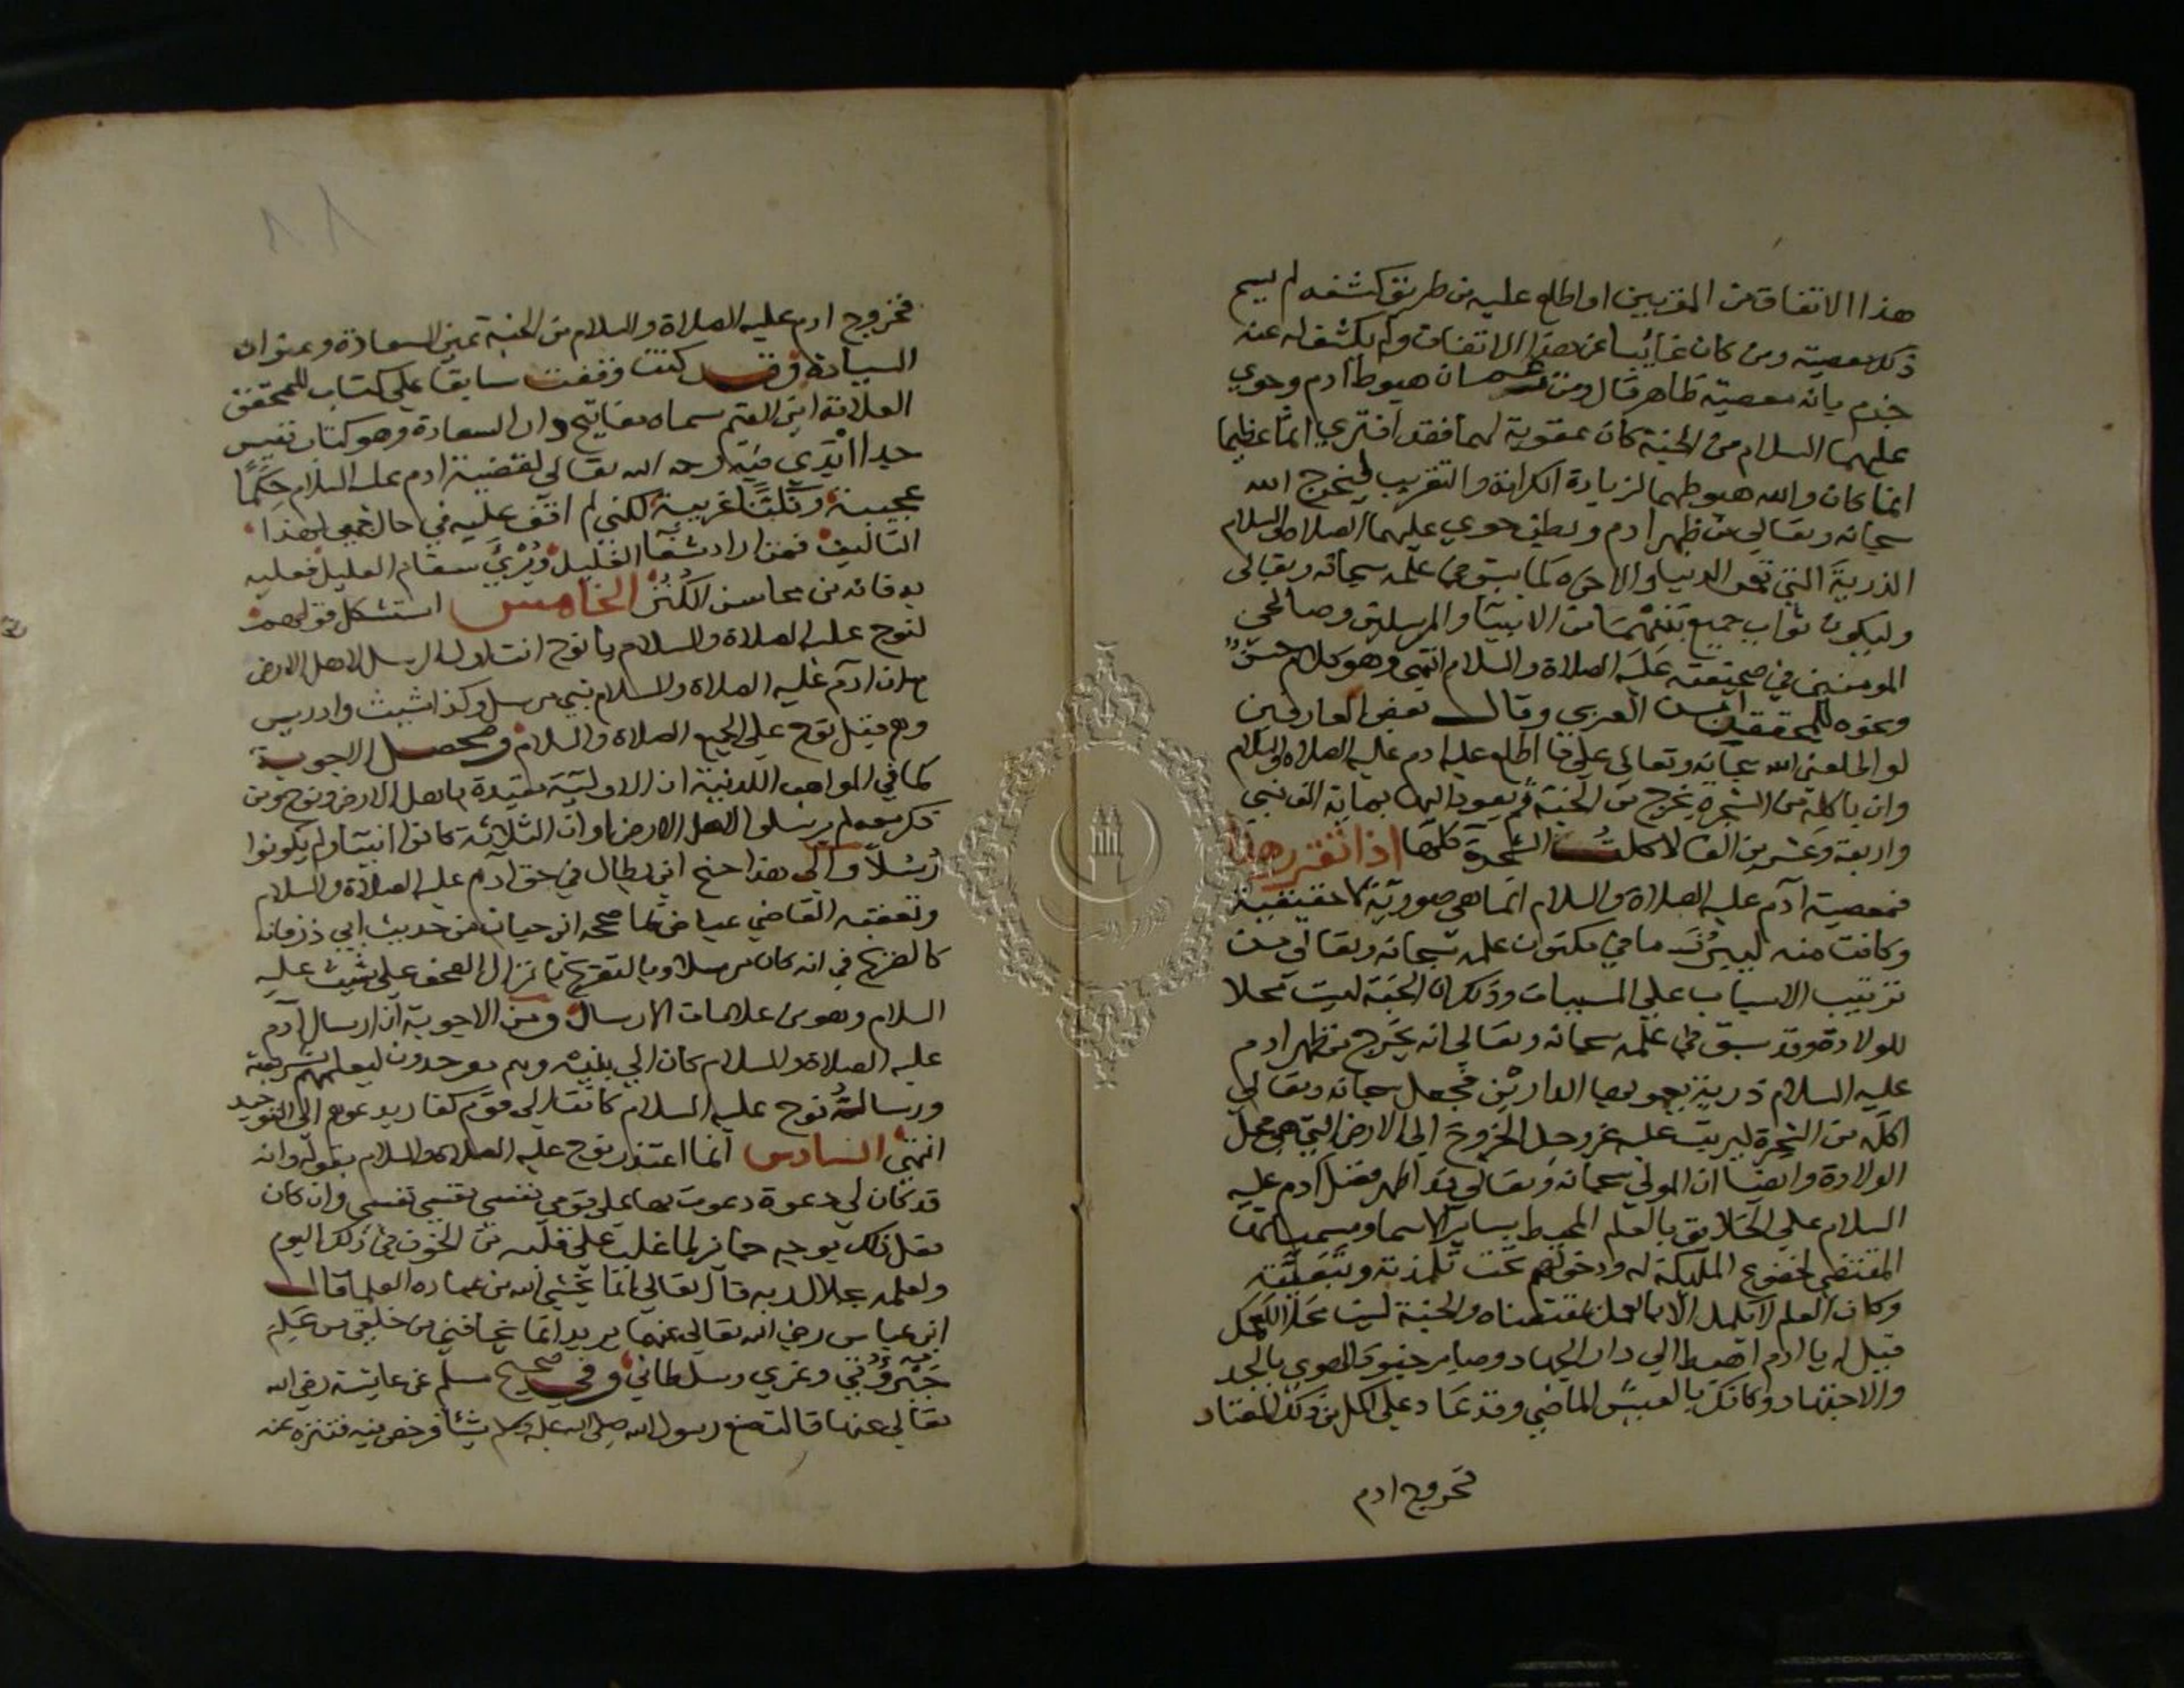 هذا الاتفاق من المقربين او اطلع عليه من طريق كشفه لم يسم
ذلك معصية ومن كان غائبا عن هذا الاتفاق ولم يكشف له عنه
جزم بانه معصية ظاهر قال ومن ان هبوط ادم وحوي
عليهما السلام من الجنة كان عقوبة لهما فقد افتري اثما عظيما
انما كان والله هبوطهما لزيادة الكرامة والتقريب ليخرج الله
سبحانه وتعالي من ظهر ادم وبطن حوي عليهما الصلاة والسلام
الذرية التي تعمر الدنيا والاخره كما سبق في علمه سبحانه وتعالى
وليكون ثواب جميع من الانبيا والمرسلين وصالحي
المومنين في صحيفته عليه الصلاة والسلام انتهي وهو كلام حسن
ونحوه للمحقق ابن العربي وقال بعض العارفين
لو اطلعني الله سبحانه وتعالى علي ما اطلع عليه ادم عليه الصلاة والسلام
وان باكله من الشجرة يخرج من الجنة ثم يعود اليها بماية الف نبي
واربعة وعشرين الفا لاكلت الشجرة كلها اذا تقرر هذا
فمعصية آدم عليه الصلاة والسلام انما هي صورية لا حقيقية
وكانت منه ليبرز ما في مكنون علمه سبحانه وتعالى من
ترتيب الاسباب علي المسببات وذلك ان الجنة ليست محلا
للولادة وقد سبق في علمه سبحانه وتعالى انه يخرج من ظهر ادم
عليه السلام ذرية يعمر بها الدارين فجعل سبحانه وتعالي
اكله من الشجرة ليرتب عليه عز وجل الخروج الي الارض التي هي محل
الولادة وايضا ان المولي سبحانه وتعالي قد اظهر فضل آدم عليه
السلام علي الخلايق بالعلم المحيط بساير الاسما ومسمياتها
المقتضي لخضوع المليكة له ودخولهم تحت تلمذته وتبعيته
وكان العلم لا يكمل الا بالعمل بمقتضاه والجنة ليست محلا للعمل
فقيل له يا ادم اهبط الي دار الجهاد وصابر جنود الهوي بالجد
والاجتهاد وكانك بالعيش الماضي وقد عاد علي اكمل من ذلك المعتاد
فخروج ادم
فخروج ادم عليه الصلاة والسلام من الجنة عين السعادة وعنوان
السيادة وقد كنت وقفت سابقا علي كتاب للمحقق
العلامة ابن القيم سماه مفاتيح دار السعادة وهو كتاب نفيس
جدا ابدي فيه رحمه الله تعالي لقضية ادم عليه السلام حكما
عجيبة ونكتا غريبة لكني لم اقف عليه في حال جمعي لهذا
التاليف فمن اراد شفآ الغليل ويبري سقام العليل فعليه
به فانه من محاسن الكنز الخامس استشكل قولهم
لنوح عليه الصلاة والسلام يا نوح انت اول الرسل لاهل الارض
بان آدم عليه الصلاة والسلام نبي مرسل وكذا شيث وادريس
وهم قبل نوح علي الجميع الصلاة والسلام ومحصل الاجوبة
كما في المواهب اللدنية ان الاولية مقيدة باهل الارض ونوح ومن
ذكر معه لم يرسلوا لاهل الارض او ان الثلاثة كانوا انبيآ ولم يكونوا
رسلا والي هذا جنح ابن بطال في حق آدم عليه الصلاة والسلام
وتعقبه القاضي عياض بما صححه ابن حبان من حديث ابي ذر فانه
كالصريح في انه كان مرسلا وبالتصريح بانزال الصحف علي شيث عليه
السلام وهو من علامات الارسال ومن الاجوبة ان ارسال آدم
عليه الصلاة والسلام كان الي بنيه وهم موحدون ليعلمهم شريعته
ورسالة نوح عليه السلام كانت الي قوم كفار يدعوهم الي التوحيد
انتهي السادس انما اعتذر نوح عليه الصلاة والسلام بقوله وانه
قد كان لي دعوة دعوت بها علي قومي نفسي نفسي نفسي وان كان
فعل ذلك بوجه جايز لما غلب علي قلبه من الخوف في ذلك اليوم
ولعلمه بجلال ربه قال تعالي انما يخشي الله من عباده العلما قال
ابن عباس رضي الله تعالي عنهما يريد انما يخافني من خلقي من علم
جبروتي وعزي وسلطاني وفي صحيح مسلم عن عايشة رضي الله
تعالي عنها قالت صنع رسول الله صلي الله عليه وسلم شيئا فرخص فيه فتنزه عنه